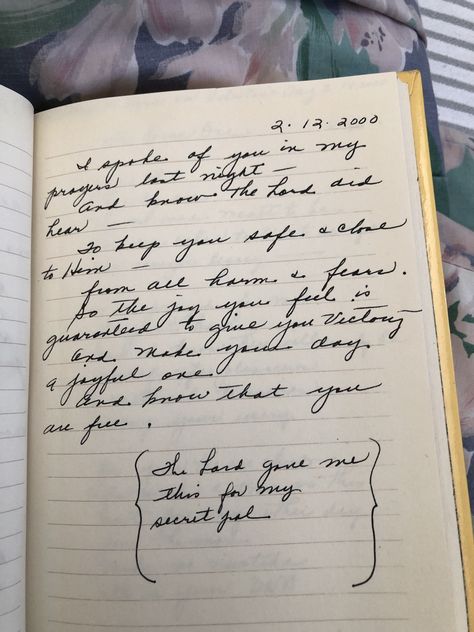 2.12.2000
I spoke of you in my
prayers last night —
And know the Lord did
hear —
To keep you safe & close
to Him —
from all harm & fears.
So the joy you feel is
guaranteed to give you Victory
And make your day
a joyful one
And know that you
are free.
The Lord gave me
this for my
secret pal